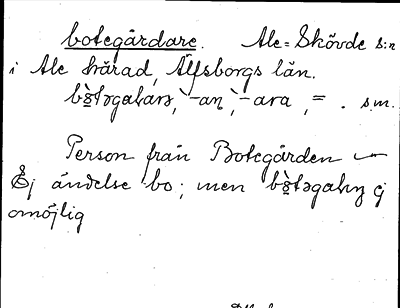 botegårdare. Ale-Skövde s:n
i Ale härad, Älfsborgs län.
-an, -ara, =. s.m.
Person från Botegården
Ej ändelse bo; men ej
omöjlig